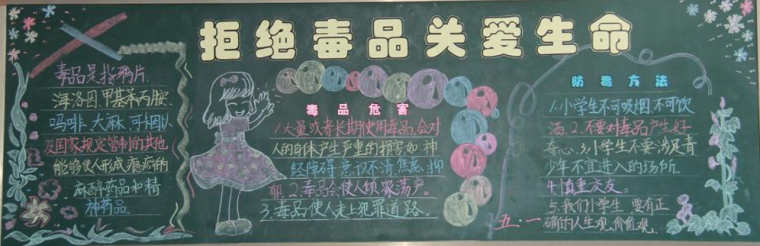 拒绝毒品关爱生命
毒品是指鸦片、
海洛因、甲基苯丙胺、
吗啡、大麻、可卡因以
及国家规定管制的其他
能够使人形成瘾癖的
麻醉药品和精
神药品。
毒品危害
1.大量或者长期使用毒品,会对
人的身体产生严重的损害,如神
经障碍、意识不清、焦虑、抑
郁。2.毒品会使人倾家荡产。
3.毒品使人走上犯罪道路。
防毒方法
1.小学生不可吸烟不可饮
酒。2.不要对毒品产生好
奇心。3.小学生不要涉足青
少年不宜进入的场所
4.慎重交友。
5.我们小学生要有正
确的人生观、价值观。
五.一